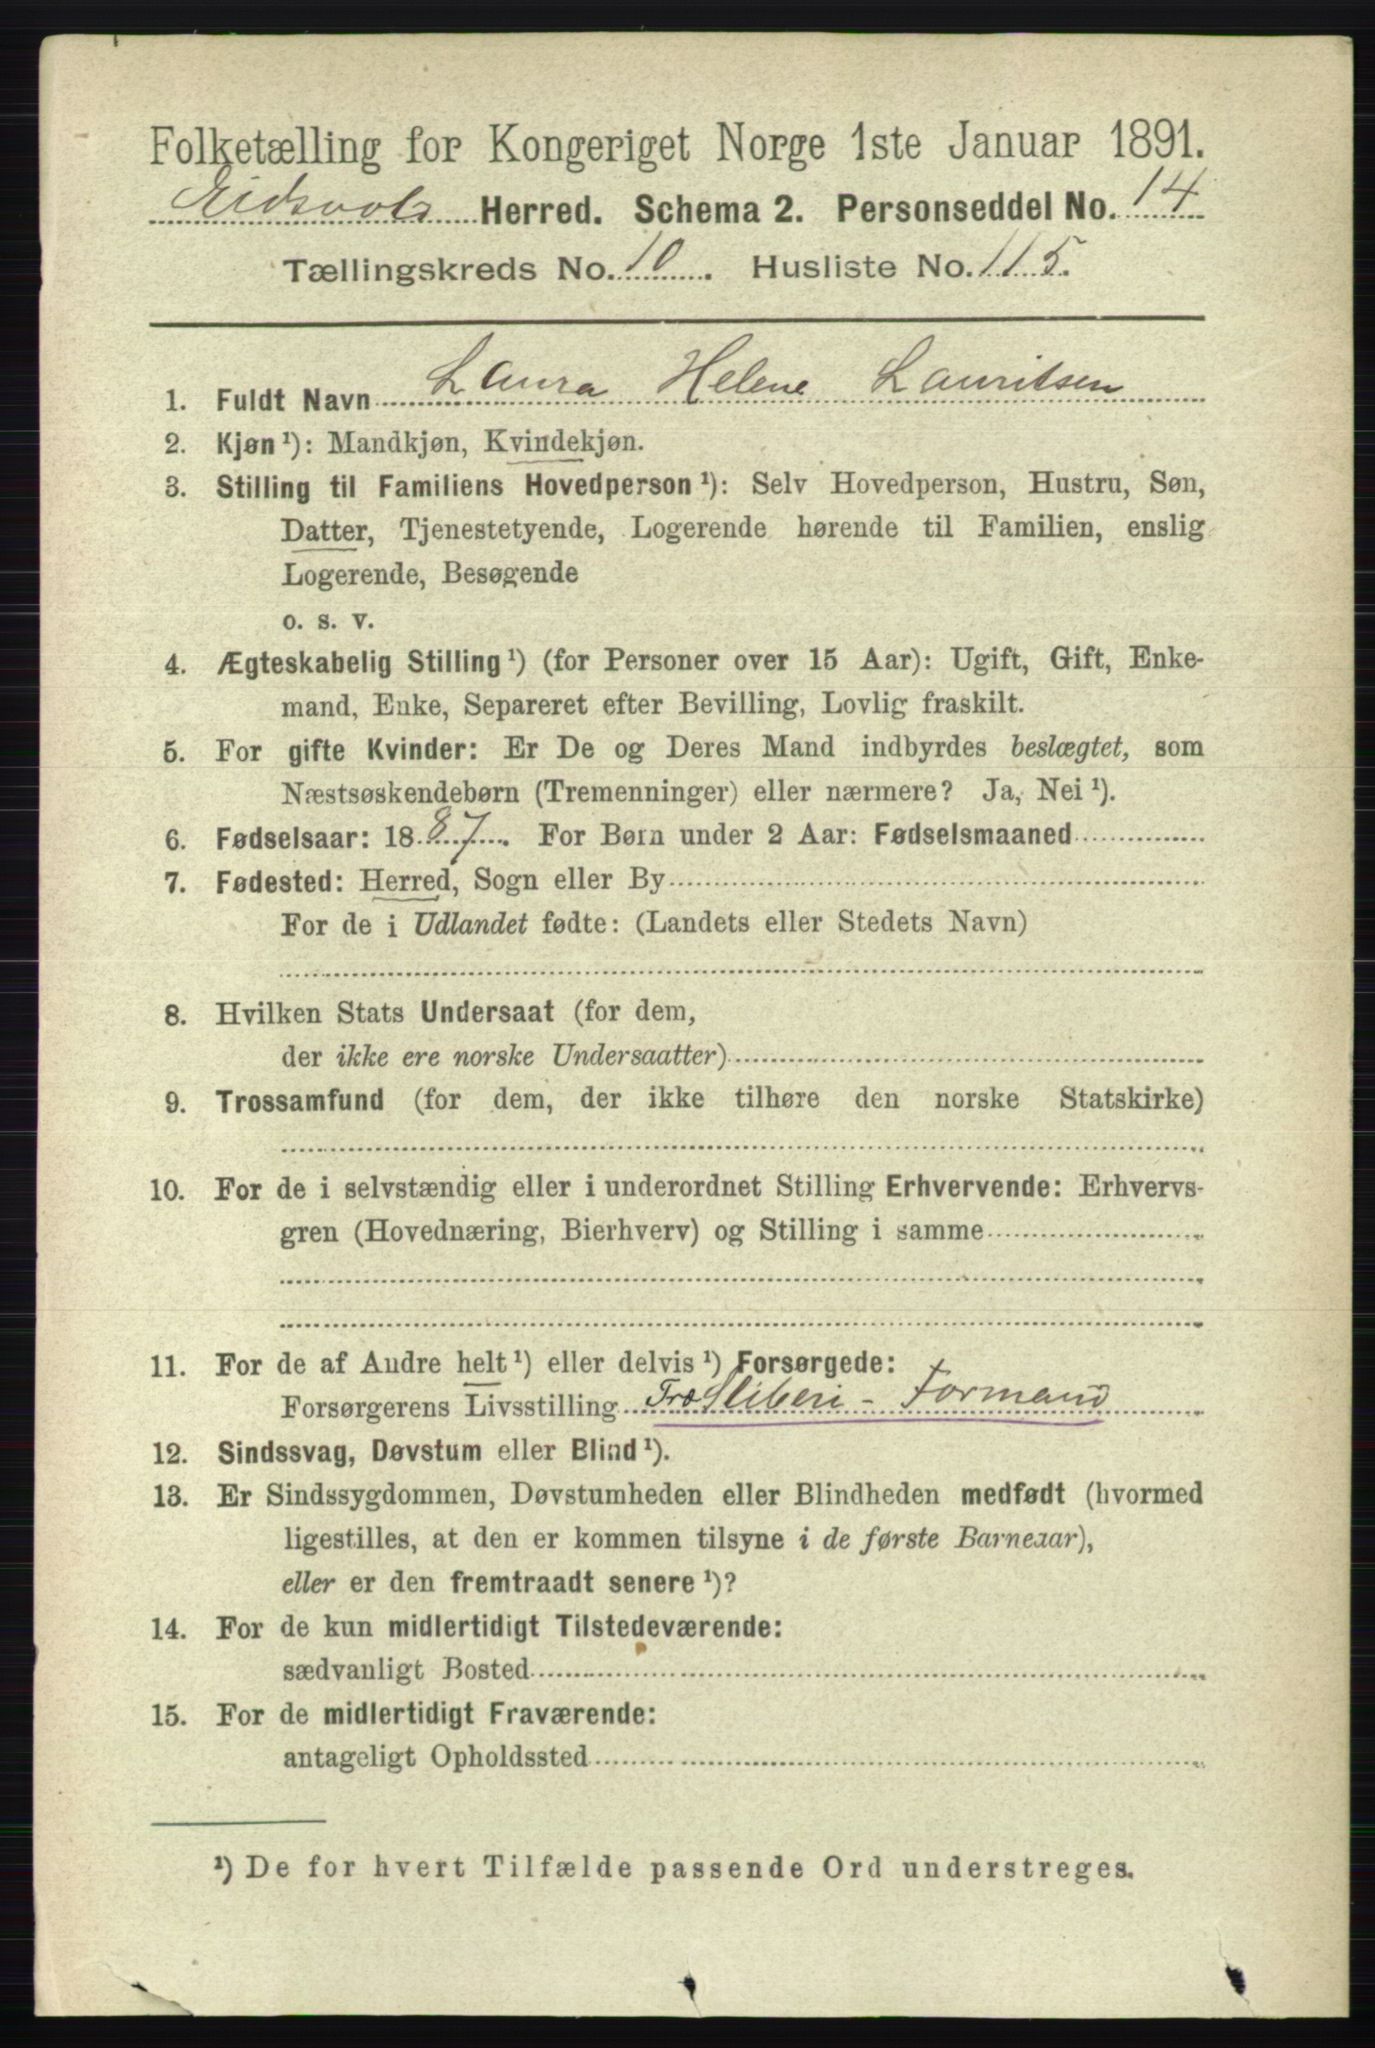 Folketælling for Kongeriget Norge 1ste Januar 1891.
Eidsvols Herred. Schema 2. Personseddel No. 14
Tællingskreds No. 10. Husliste No. 115.
1. Fuldt Navn Laura Helene Lauritsen
2. Kjøn ¹): Mandkjøn, Kvindekjøn.
3. Stilling til Familiens Hovedperson ¹): Selv Hovedperson, Hustru, Søn,
Datter, Tjenestetyende, Logerende hørende til Familien, enslig
Logerende, Besøgende
o. s. v.
4. Ægteskabelig Stilling ¹) (for Personer over 15 Aar): Ugift, Gift, Enke-
mand, Enke, Separeret efter Bevilling, Lovlig fraskilt.
5. For gifte Kvinder: Er De og Deres Mand indbyrdes beslægtet, som
Næstsøskendebørn (Tremenninger) eller nærmere? Ja, Nei ¹).
6. Fødselsaar: 1887. For Børn under 2 Aar: Fødselsmaaned
7. Fødested: Herred, Sogn eller By
For de i Udlandet fødte: (Landets eller Stedets Navn)
8. Hvilken Stats Undersaat (for dem,
der ikke ere norske Undersaatter)
9. Trossamfund (for dem, der ikke tilhøre den norske Statskirke)
10. For de i selvstændig eller i underordnet Stilling Erhvervende: Erhvervs-
gren (Hovednæring, Bierhverv) og Stilling i samme
11. For de af Andre helt ¹) eller delvis ¹) Forsørgede:
Forsørgerens Livsstilling Træ Sliberi - Formand
12. Sindssvag, Døvstum eller Blind ¹).
13. Er Sindssygdommen, Døvstumheden eller Blindheden medfødt (hvormed
ligestilles, at den er kommen tilsyne i de første Barneaar),
eller er den fremtraadt senere ¹)?
14. For de kun midlertidigt Tilstedeværende:
sædvanligt Bosted
15. For de midlertidigt Fraværende:
antageligt Opholdssted
¹) De for hvert Tilfælde passende Ord understreges.